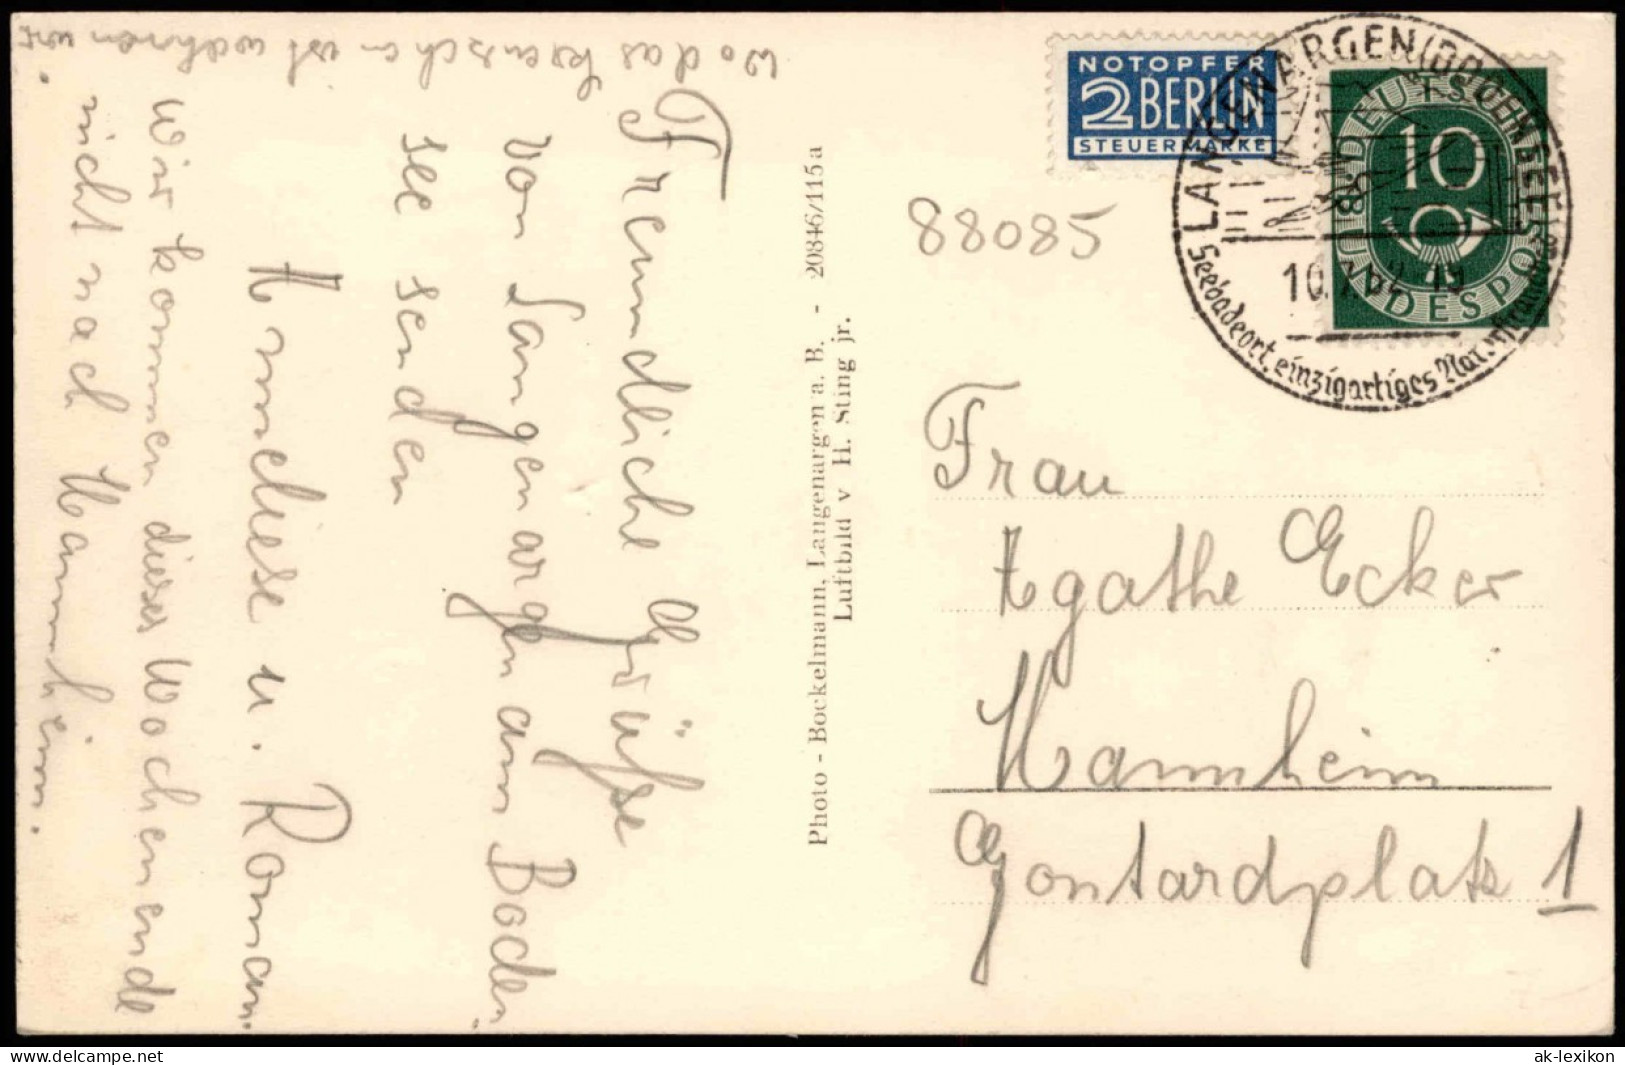 Freundliche Grüße
von Langenargen am Boden
see senden
Anneliese u. Roman.
Wir kommen dieses Wochenende
nicht nach Mannheim.
wo das
ist
wir
Photo - Bockelmann, Langenargen a. B. - 20846/115a
Luftbild v H. Sting jr.
NOTOPFER
2 BERLIN
STEUERMARKE
DEUTSCHE BUNDESPOST
10
LANGENARGEN (BODENSEE)
Seebadeort, einzigartiges
88085
Frau
Agathe Ecker
Mannheim
Gontardplatz 1
www.delcampe.net
ak-lexikon